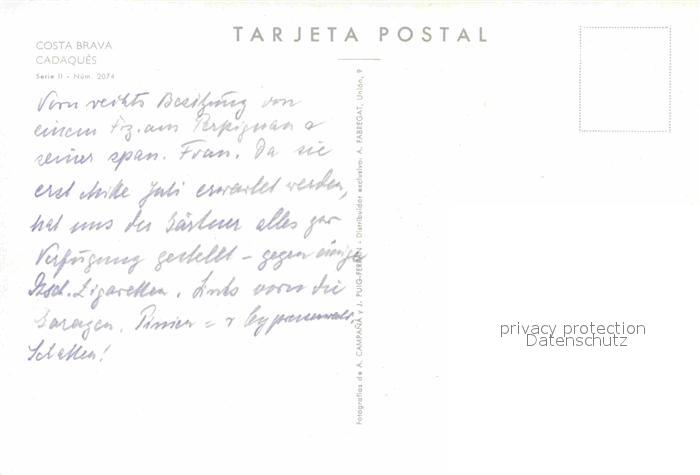 TARJETA POSTAL
COSTA BRAVA
CADAQUÉS
Serie II - Núm. 2074
Vorn rechts Besitzung von
einem Fz. aus Perpignan &
seiner span. Frau. Da sie
erst Mitte Juli erwartet werden,
hat uns der Gärtner alles zur
Verfügung gestellt – gegen einige
Dtsch. Zigaretten. Links vorn die
Garagen. Pinien = &
Schatten!
Fotografías de A. CAMPAÑÁ y J. PUIG-FERRÁN - Distribuidor exclusivo: A. FABREGAT, Unión, 9
privacy protection
Datenschutz